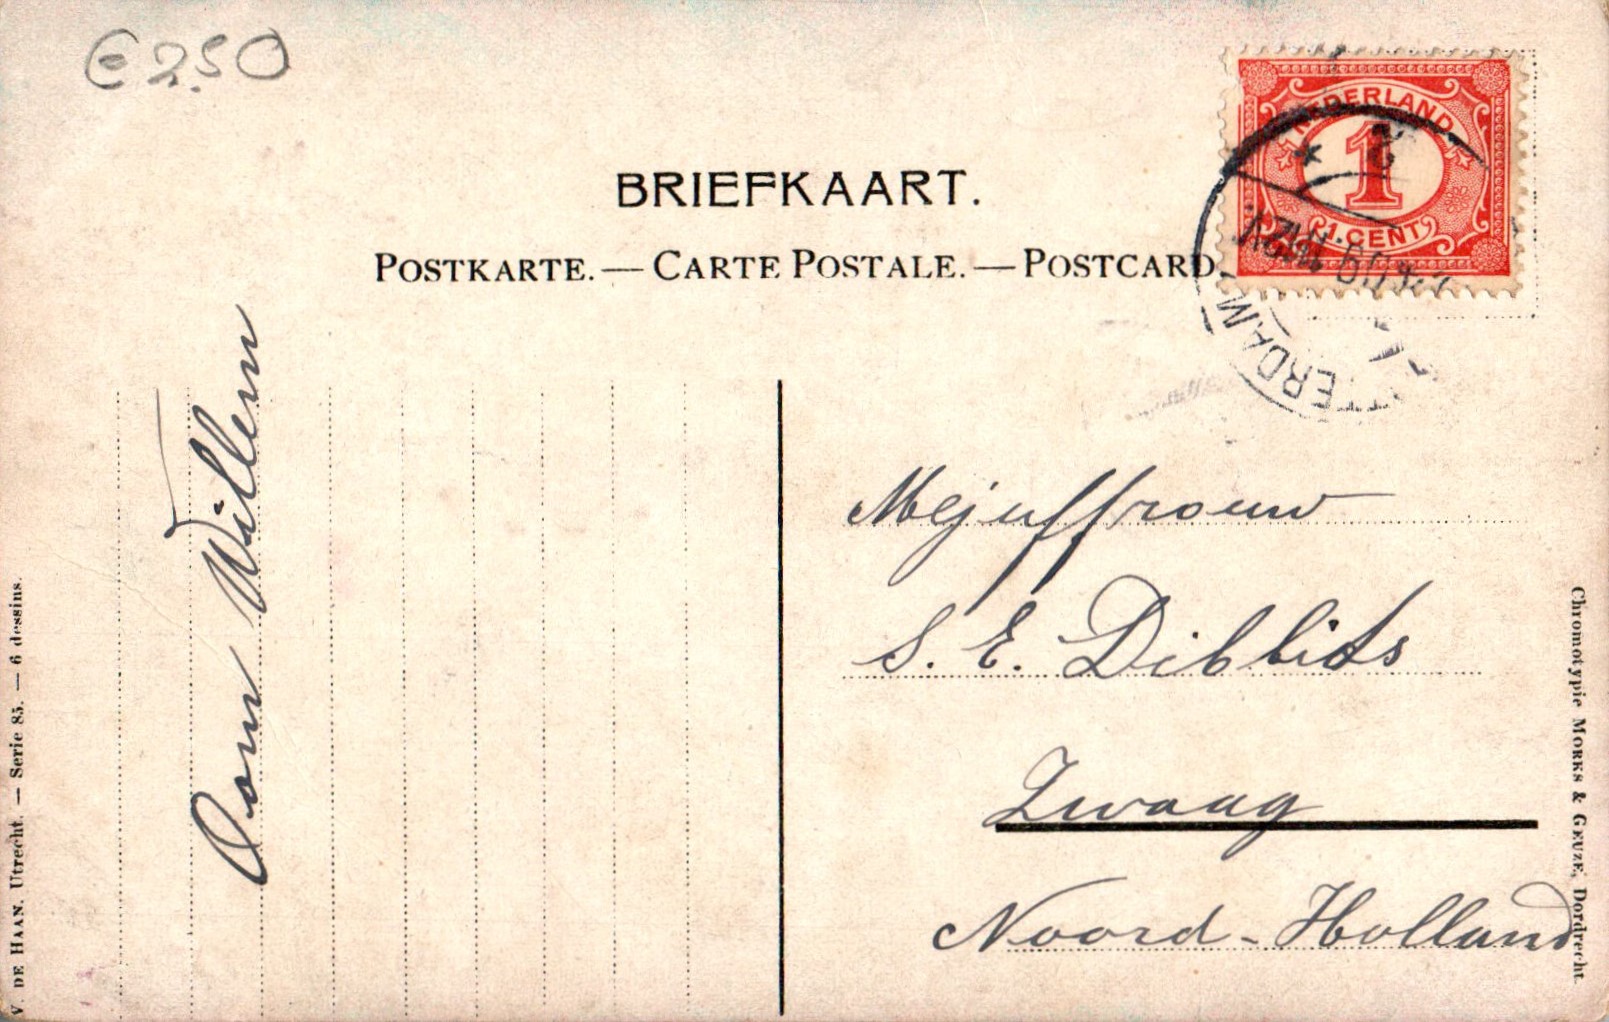 € 2,50
BRIEFKAART.
POSTKARTE. — CARTE POSTALE. — POSTCARD.
NEDERLAND
1
1 CENT
TERDAM
Oom Willem
Mejuffrouw
S. E. Dibbits
Zwaag
Noord-Holland
V. DE HAAN. Utrecht. — Serie 85. — 6 dessins.
Chromotypie MORKS & GEUZE, Dordrecht.